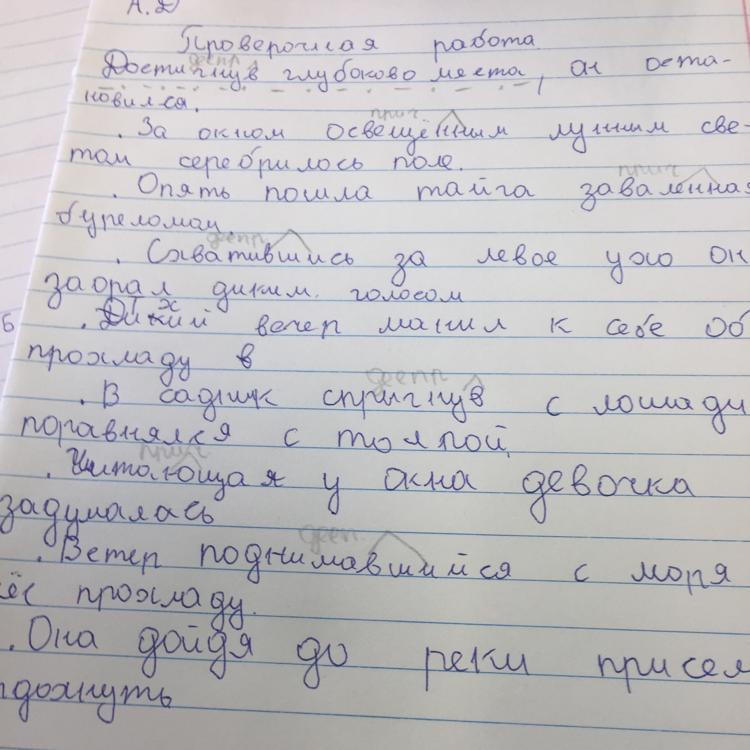 А. Д
Проверочная работа
дееп
Достигнув глубоково места, он оста-
новился.
прич
. За окном освещённым лунним све-
том серебрилось поле.
прич
. Опять пошла тайга заваленная
буреломом.
дееп
. Схватившись за левое ухо он
заорал диким голосом
Б
. Тихий вечер манил к себе об
прохладу в
дееп
. В садник спригнув с лошади
поравнялся с толпой.
прич
. Читающая у окна девочка
задумалась
дееп.
. Ветер поднимавшийся с моря
ёс прохладу.
. Она дойдя до реки присел
тдохнуть